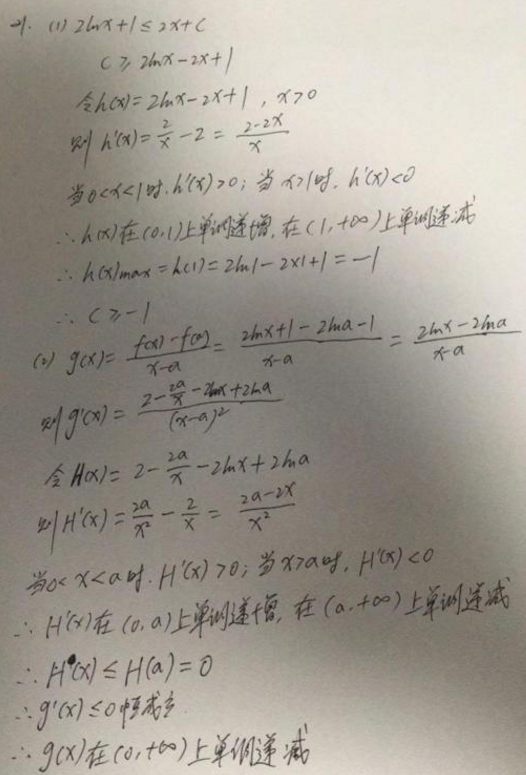 21. (1) 2lnx+1≤2x+c
c≥2lnx-2x+1
令h(x)=2lnx-2x+1, x>0
则h'(x)=2/x-2=(2-2x)/x
当0<x<1时,h'(x)>0;当x>1时,h'(x)<0
∴h(x)在(0,1)上单调递增,在(1,+∞)上单调递减
∴h(x)max=h(1)=2ln1-2×1+1=-1
∴c≥-1
(2) g(x)=(f(x)-f(a))/(x-a)=(2lnx+1-2lna-1)/(x-a)=(2lnx-2lna)/(x-a)
则g'(x)=(2-2a/x-2lnx+2lna)/(x-a)²
令H(x)=2-2a/x-2lnx+2lna
则H'(x)=2a/x²-2/x=(2a-2x)/x²
当0<x<a时,H'(x)>0;当x>a时,H'(x)<0
∴H'(x)在(0,a)上单调递增,在(a,+∞)上单调递减
∴H(x)≤H(a)=0
∴g'(x)≤0恒成立
∴g(x)在(0,+∞)上单调递减